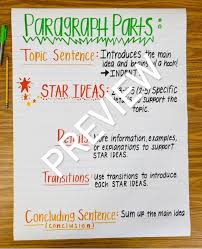 Paragraph Parts:
Topic Sentence: Introduces the main
idea and a hook!
→ INDENT
STAR IDEAS: (3-5) specific
details to support the
topic.
Details: More information, examples,
or explanations to support
STAR IDEAS.
Transitions: Use transitions to introduce
each STAR IDEAS.
Concluding Sentence: Sum up the main idea
(conclusion)
PREVIEW